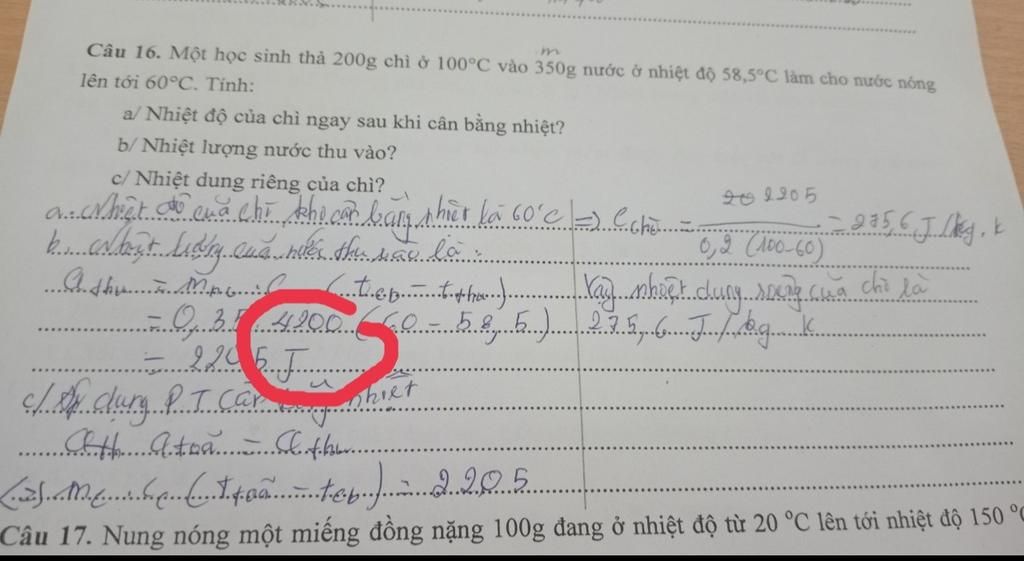 Câu 16. Một học sinh thả 200g chì ở 100°C vào 350g nước ở nhiệt độ 58,5°C làm cho nước nóng
m
lên tới 60°C. Tính:
a/ Nhiệt độ của chì ngay sau khi cân bằng nhiệt?
b/ Nhiệt lượng nước thu vào?
c/ Nhiệt dung riêng của chì?
a. Nhiệt độ của chì khi cân bằng nhiệt là 60°C
b. Nhiệt lượng của nước thu vào là:
Q thu = m nc . (t cb - t thu)
= 0,35. 4200 (60 - 58,5)
= 2205 J
c/ Áp dụng P.T cân bằng nhiệt
Q tỏa = Q thu
(=) mc . Cc (t tỏa - t cb) = 2205
=> C chì = 2205 / 0,2 (100-60) = 275,6 J/kg.k
Vậy nhiệt dung riêng của chì là
275,6 J/kg k
Câu 17. Nung nóng một miếng đồng nặng 100g đang ở nhiệt độ từ 20 °C lên tới nhiệt độ 150 °C